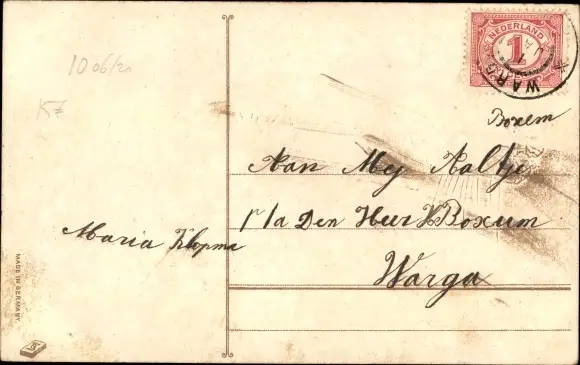 NEDERLAND
1
WARG
10 06/20
KZ
Boxem
Aan Mej Aaltje
p/a Den Heer K Boxum
Maria Klopma
Warga
MADE IN GERMANY.